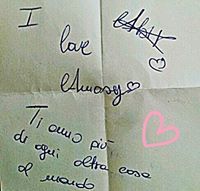 I
love
Amosy
Ti amo più
di ogni altra cosa
al mondo